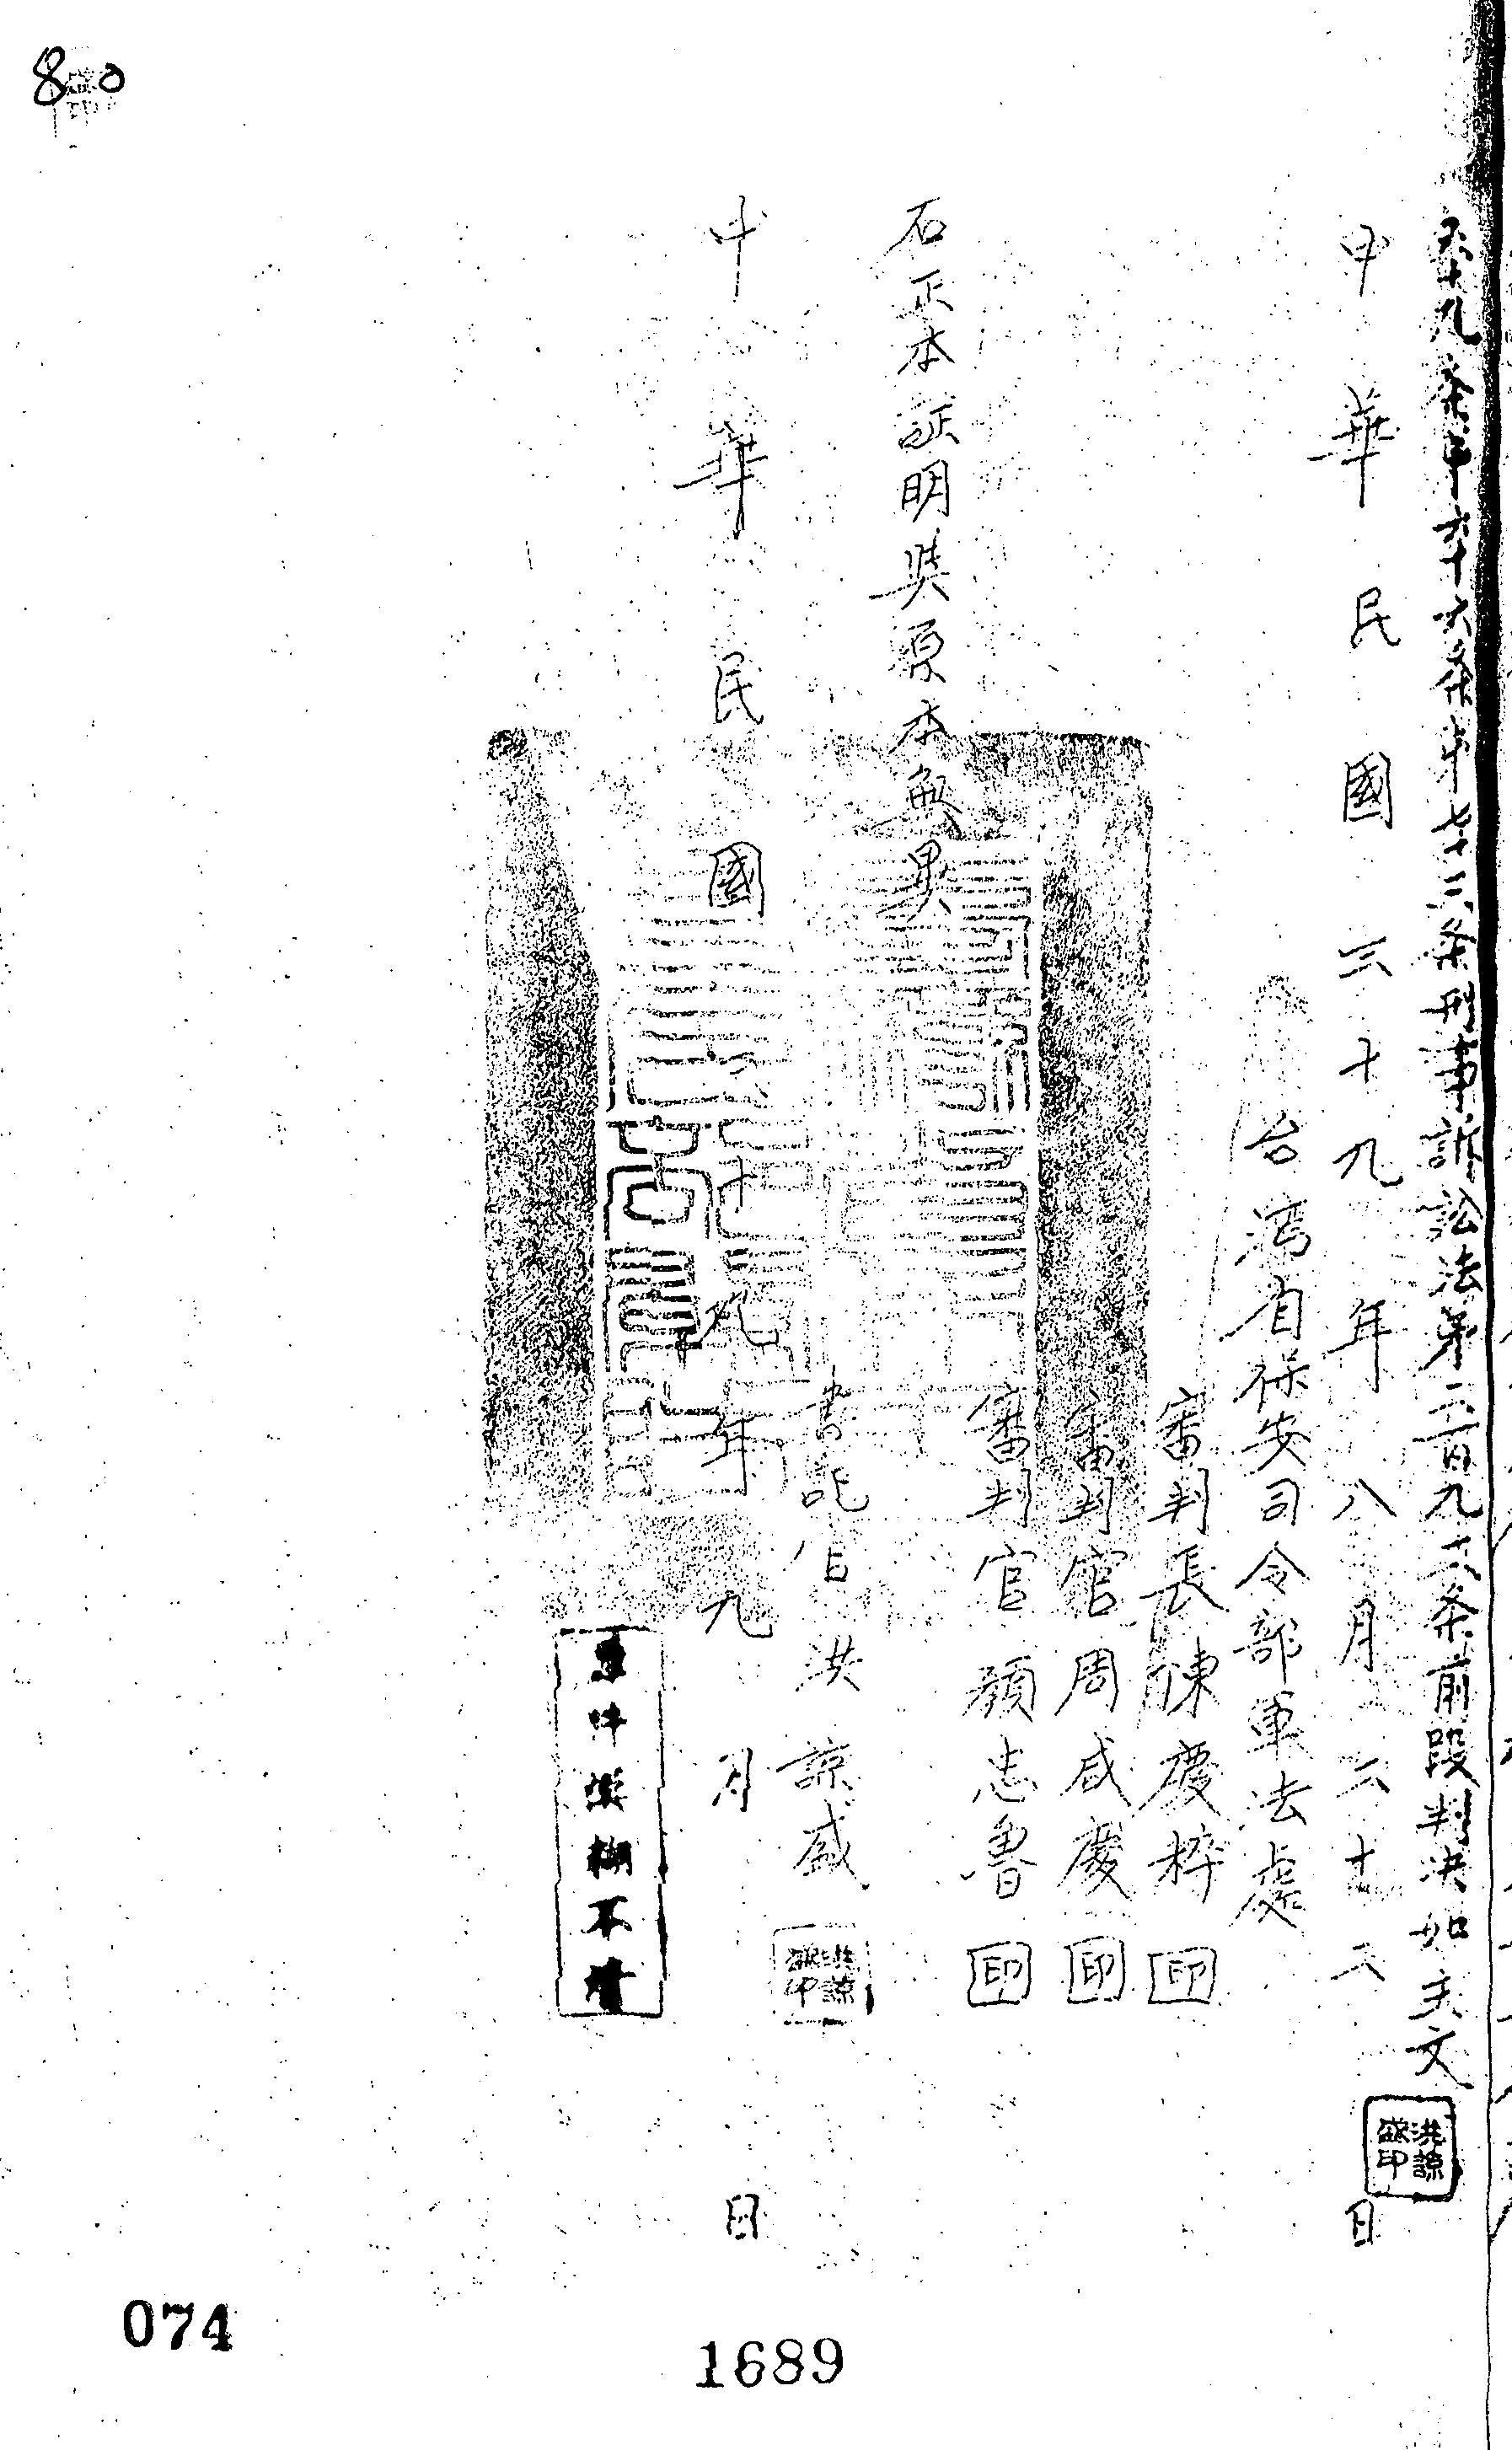 80
五十九条第六十六条第七十三条刑事訴訟法第二百九十六条前段判決如主文
中華民國三十九年八月二十二日
洪諒盛印
台湾省保安司令部軍法處
審判長陳慶粹印
審判官周咸慶印
審判官顏忠魯印
右正本証明與原本無異
書記官洪諒盛
洪諒盛印
中華民國三十九年九月日
原件模糊不清
074
1689